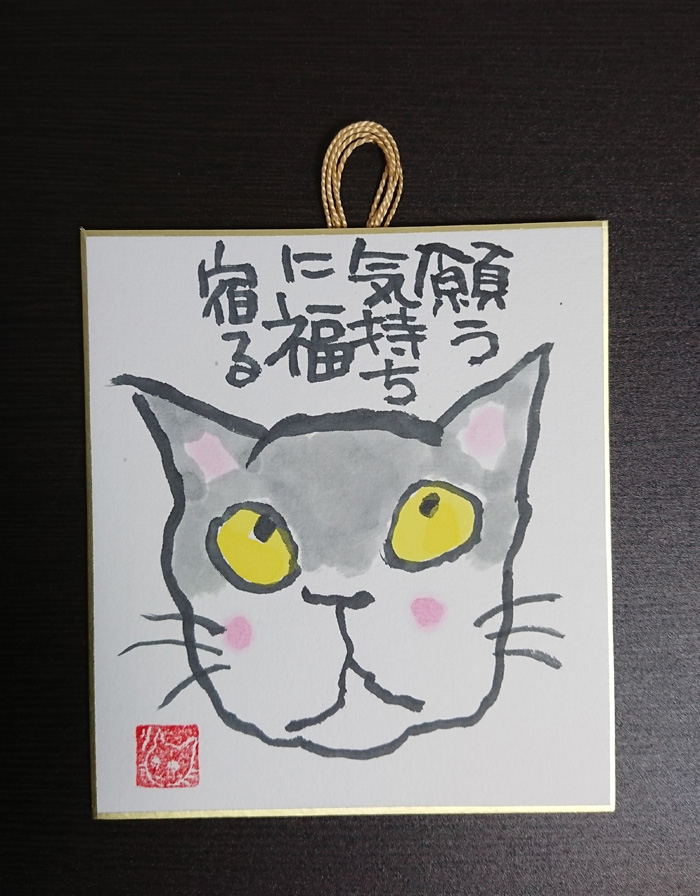 願う
気持ち
に福
宿る